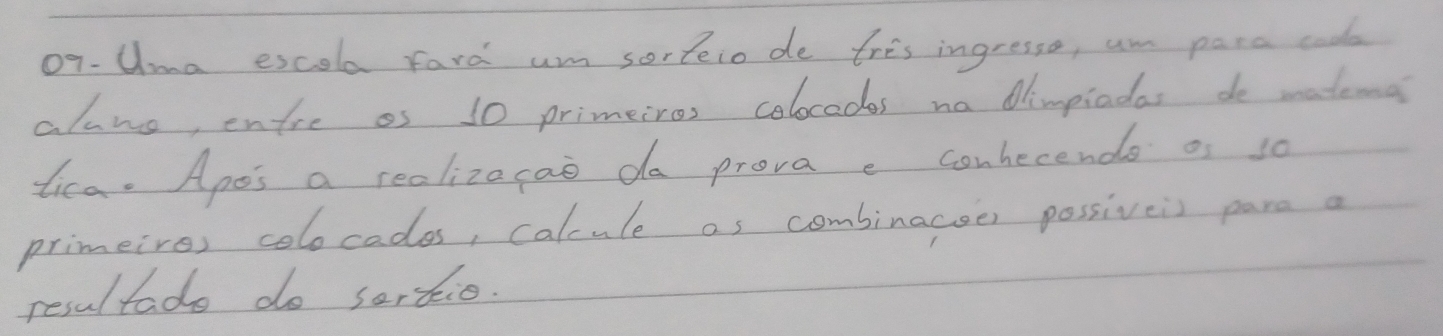 09- Uma escola fará um sorteio de três ingresso, um para cada
aluno, entre os 10 primeiros colocados na Olimpíadas de matemá
tica. Após a realização da prova e conhecendo os 10
primeiros colocados, calcule as combinações possíveis para o
resultado do sorteio.